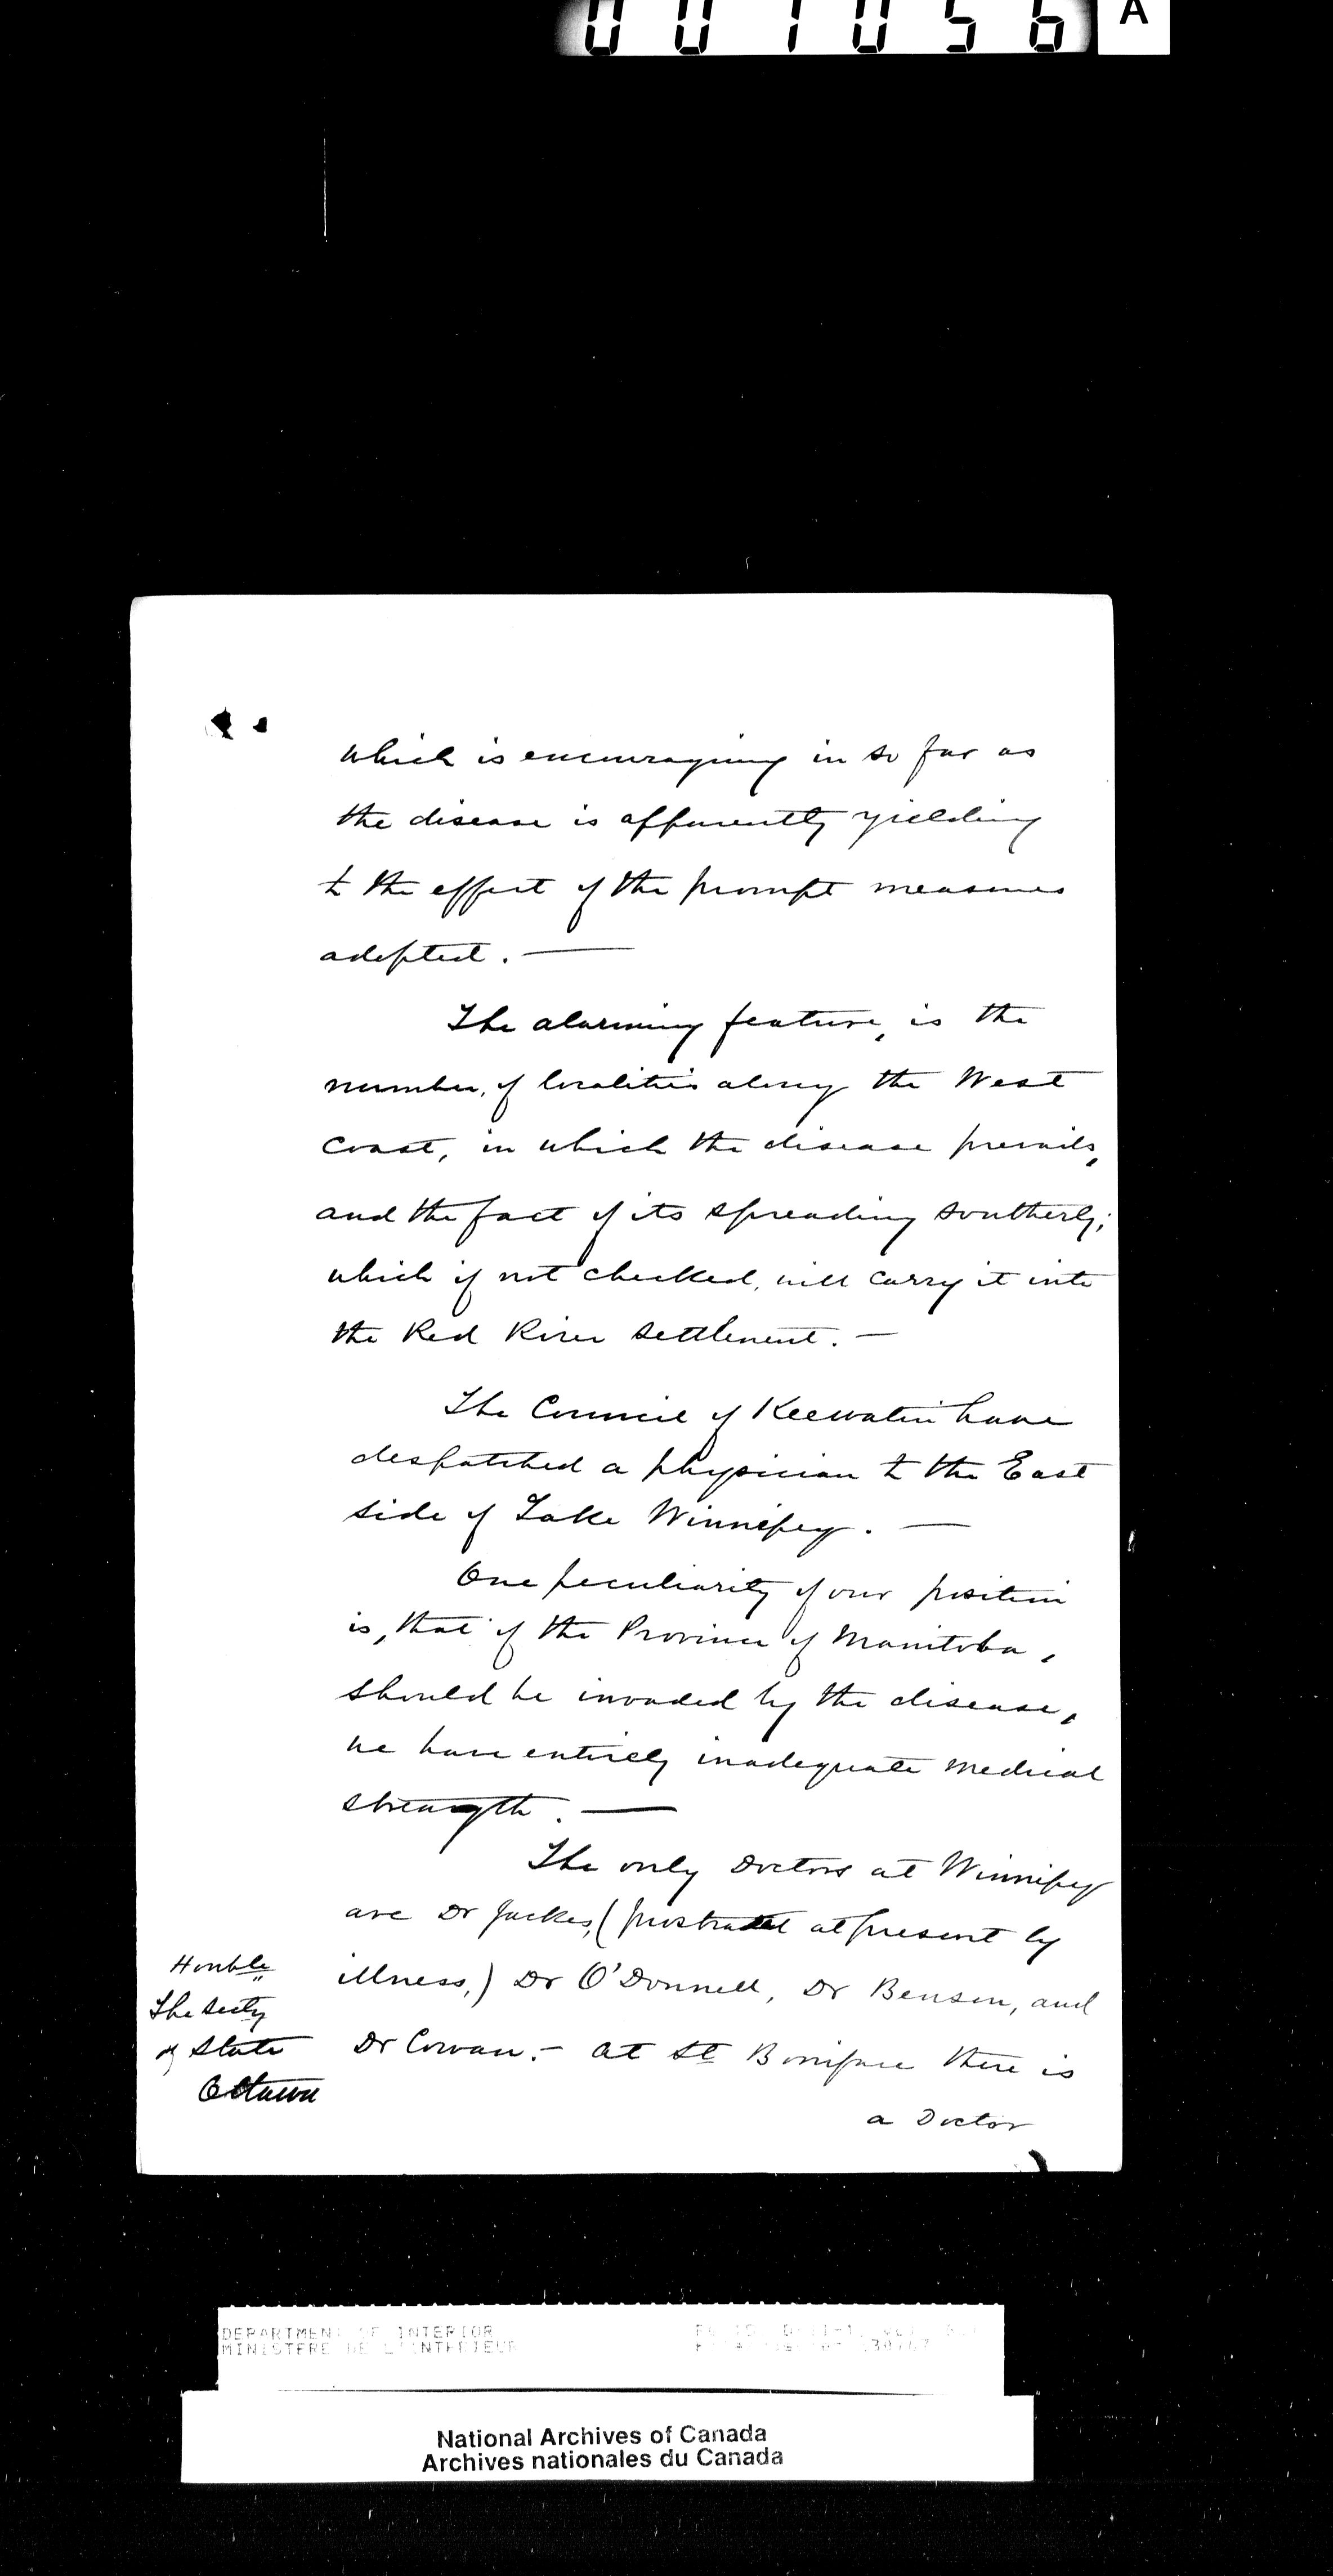 001056
A
which is encouraging in so far as
the disease is apparently yielding
to the effect of the prompt measures
adopted. —
The alarming feature, is the
number, of localities along the West
Coast, in which the disease prevails,
and the fact of its spreading southerly;
which if not checked, will carry it into
the Red River Settlement. —
The Council of Keewatin have
despatched a physician to the East
side of Lake Winnipeg. —
One peculiarity of our position
is, that if the Province of Manitoba,
should be invaded by the disease,
we have entirely inadequate medical
strength. —
The only Doctors at Winnipeg
are Dr Jackes, (prostrated at present by
illness,) Dr O'Donnell, Dr Benson, and
Dr Cowan. – at St Boniface there is
a Doctor
Honble
The Secty
of State
Ottawa
DEPARTMENT OF INTERIOR
MINISTERE DE L'INTERIEUR
National Archives of Canada
Archives nationales du Canada